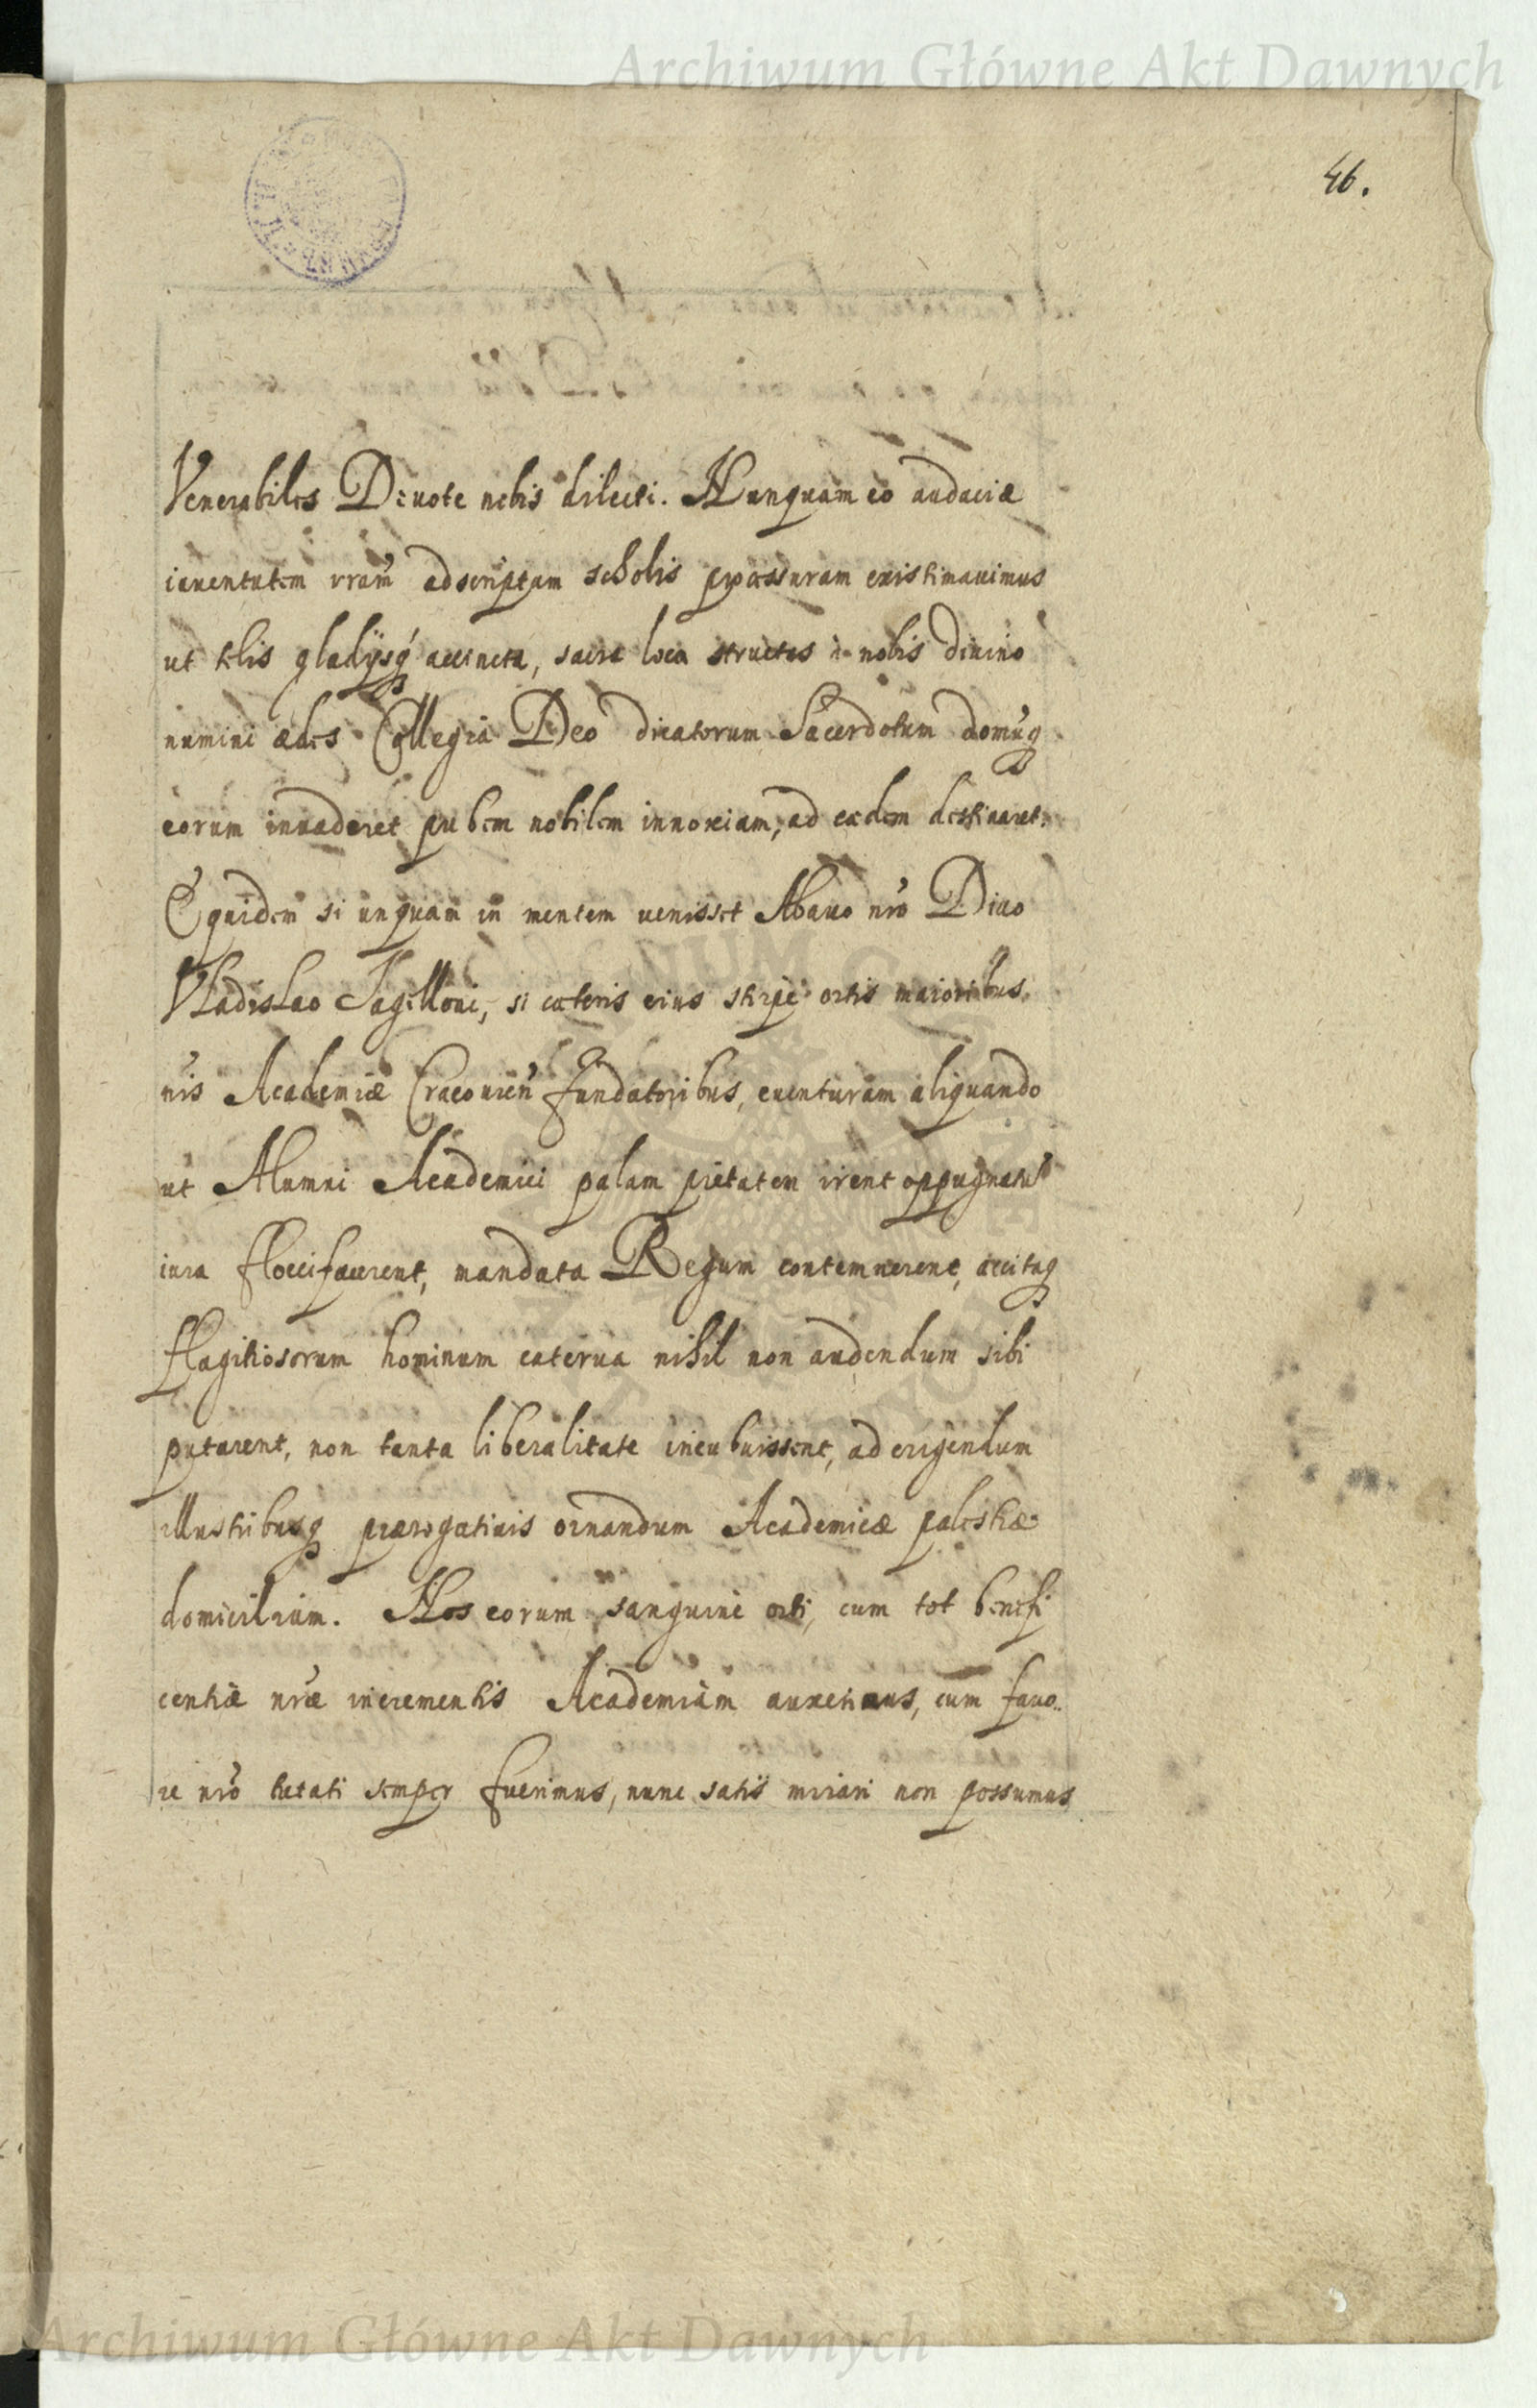 Archiwum Główne Akt Dawnych
46.
Venerabiles Deuote nobis dilecti. Nunquam eo audaciæ
iuuentutem vram̃ adscriptam scholis processuram existimauimus
ut telis gladijsq́ accincta, sacra loca structas à nobis diuino
numini ædes Collegia Deo dicatorum Sacerdotum domusq
eorum inuaderet pubem nobilem innoxiam, ad cædem destinaret.
Equidem si unquam in mentem uenisset Abauo nr̃o Diuo
Vladislao Jagelloni, si cæteris eius stirpe ortis maioribus
nr̃is Academiæ Cracouien̄ fundatoribus, euenturam aliquando
ut Alumni Academici palam pietatem irent oppugnatũ
iura floccifacerent, mandata Regum contemnerent, accitaq
flagitiosorum hominum caterua nihil non audendum sibi
putarent, non tanta liberalitate incubuissent, ad erigendum
illustribusq prærogatiuis ornandum Academicæ palestræ
domicilium. Nos eorum sanguine orti, cum tot benefi
centiæ nr̃æ incrementis Academiam auxerimus, cum fauo..
re nr̃o tutati semper fuerimus, nunc satis mirari non possumus
Archiwum Główne Akt Dawnych